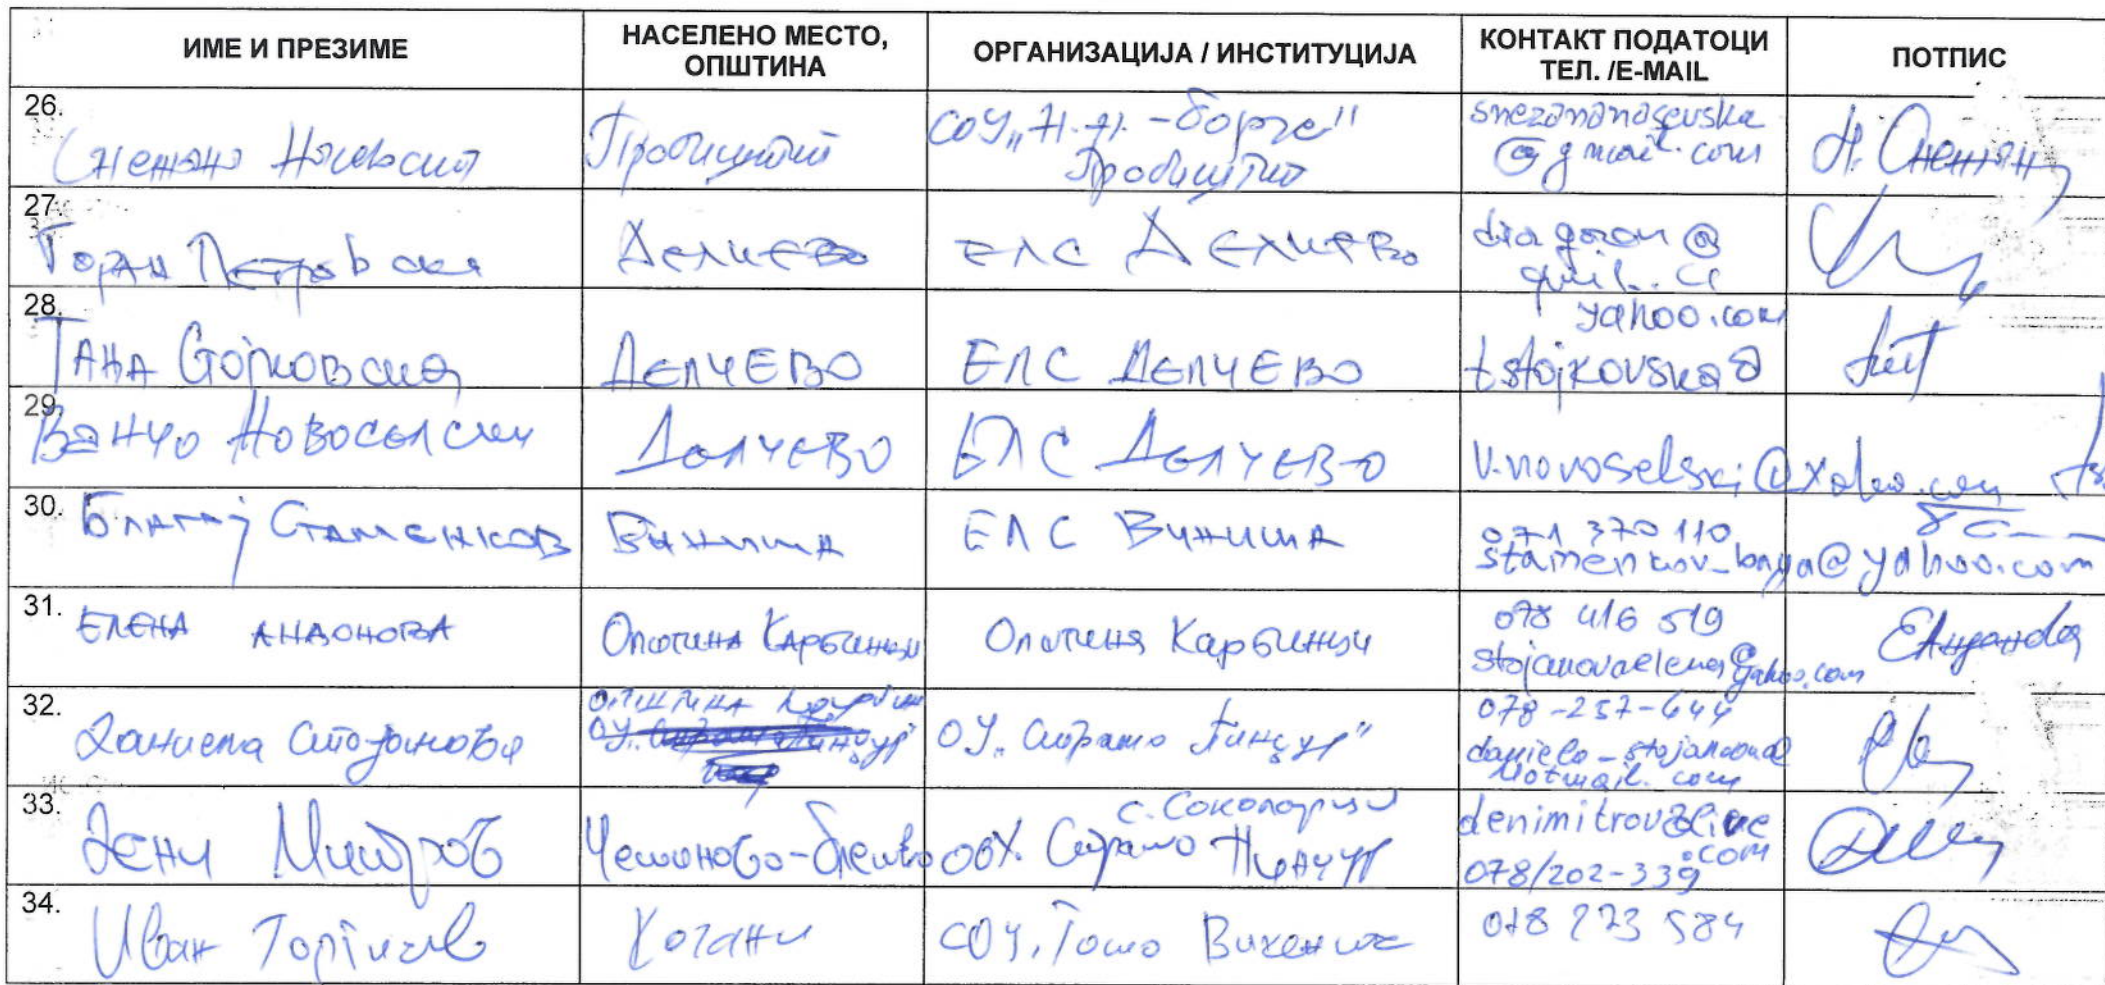 ИМЕ И ПРЕЗИМЕ
НАСЕЛЕНО МЕСТО,
ОПШТИНА
ОРГАНИЗАЦИЈА / ИНСТИТУЦИЈА
КОНТАКТ ПОДАТОЦИ
ТЕЛ. /E-MAIL
ПОТПИС
26.
Снежана
Пробиштип
СОУ „Н.Н. -Борче"
Пробиштип
snezananasevska
@gmail.com
Н. Снежана
27.
Горан Петровски
Делчево
ЕЛС Делчево
28.
Тана Стојковска
ДЕЛЧЕВО
ЕЛС ДЕЛЧЕВО
yahoo.com
t.stojkovska@
29.
Ванчо Новоселски
Делчево
ЕЛС Делчево
v.novoselski@
30.
Благој Стаменков
Виница
ЕЛС Виница
071 370 110
@yahoo.com
31.
ЕЛЕНА АНДОНОВА
Општина Карбинци
Општина Карбинци
078 416 519
stojanovaelena@yahoo.com
ЕАндонова
32.
Даниела Стојанова
општина Карбинци
ОУ „Страшо Пинџур"
078-257-644
daniela-stojanova@
hotmail.com
33.
Дени Митров
Чешиново-Облешево
с. Соколарци
ООУ. Страшо Пинџур
denimitrov@live
.com
078/202-339
34.
Иван
Кочани
СОУ, Гошо Викентиев
078 273 584